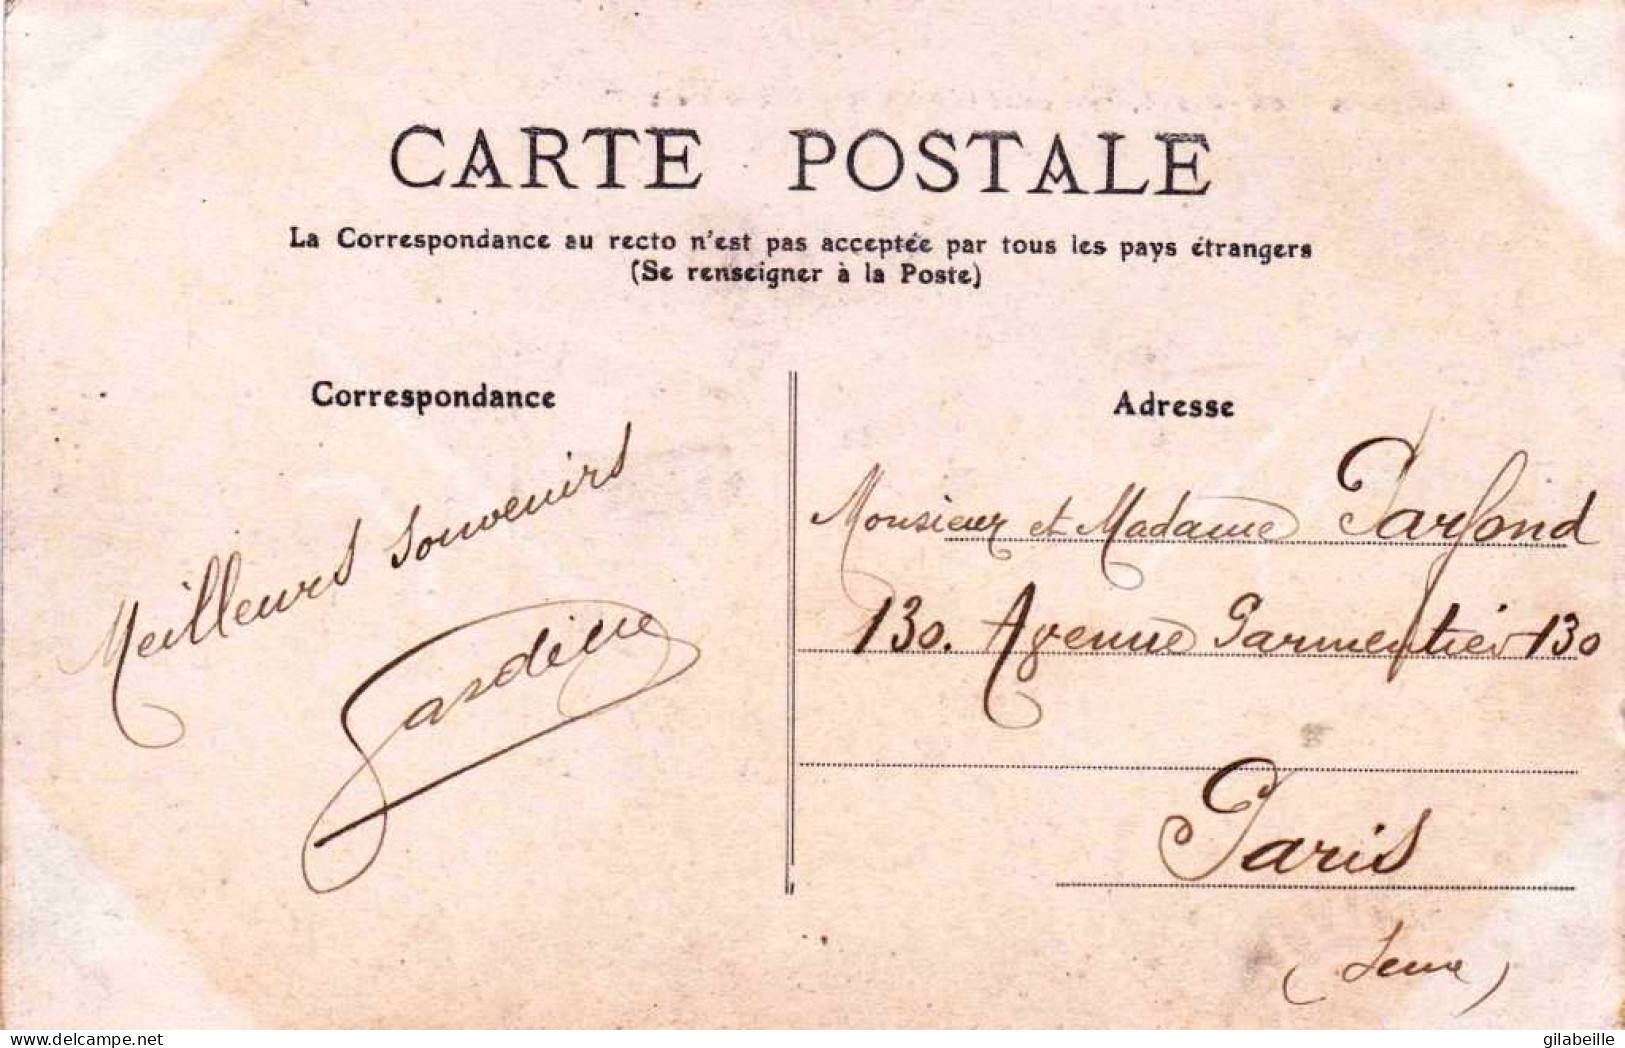 CARTE POSTALE
La Correspondance au recto n'est pas acceptée par tous les pays étrangers
(Se renseigner à la Poste)
Correspondance
Meilleurs souvenirs
Adresse
Monsieur et Madame Parfond
130. Avenue Parmentier 130
Paris
(Seine)
www.delcampe.net
gilabeille